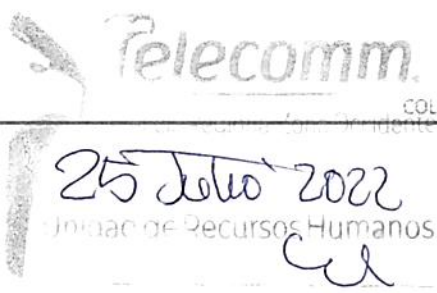 Telecomm.
COL
Occidente
25 Julio 2022
Unidad de Recursos Humanos